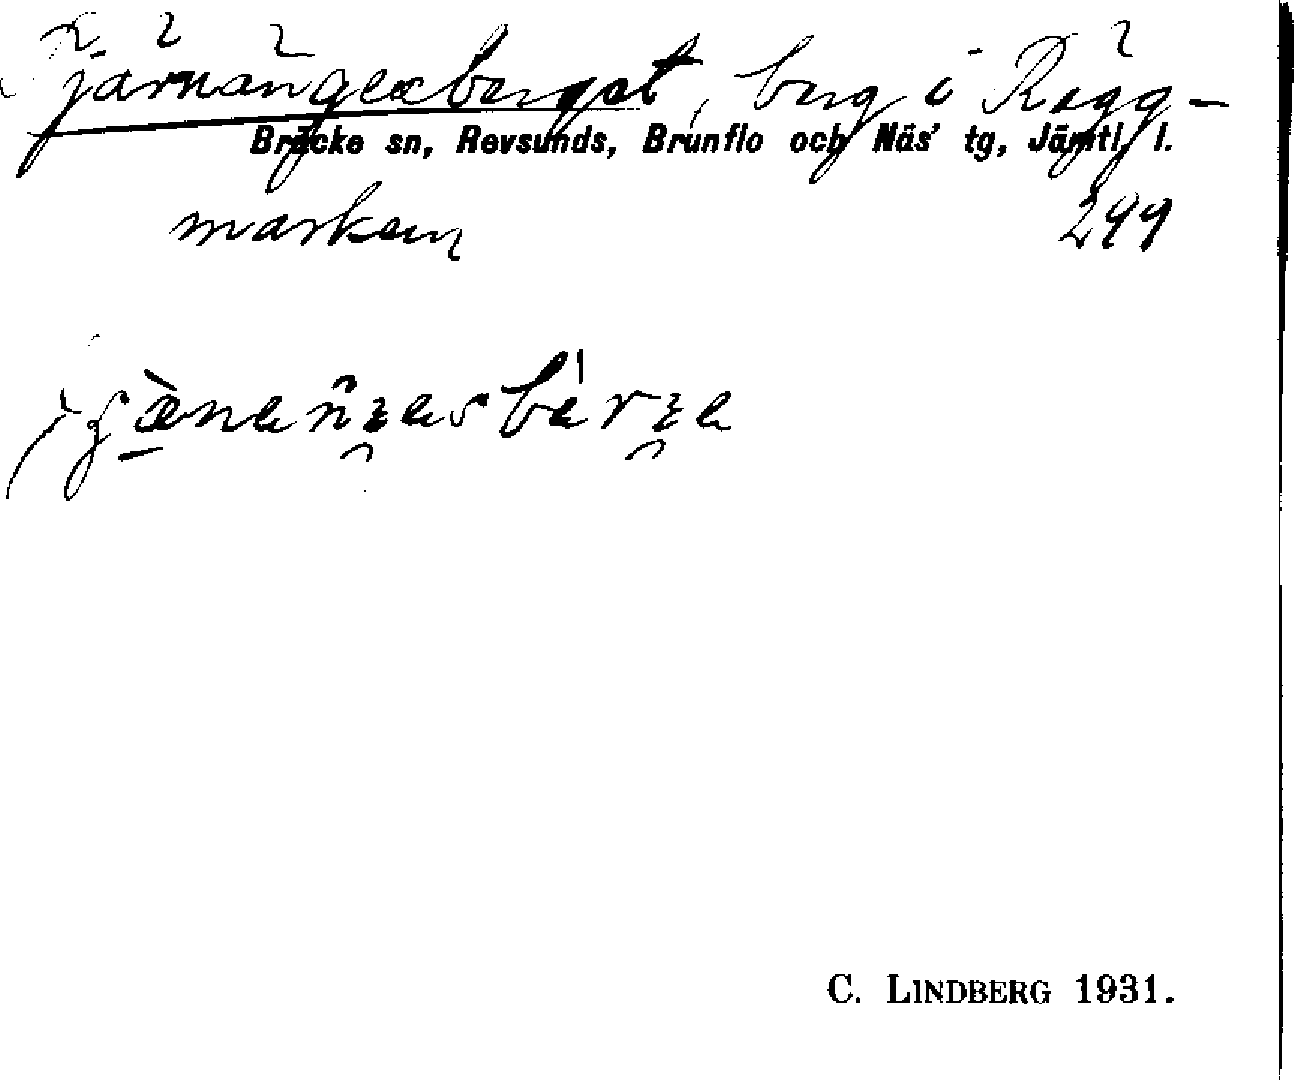 Tjärnängesberget, berg i Rägg-
Bräcke sn, Revsunds, Brunflo och Näs' tg, Jämtl. l.
marken 299
C. LINDBERG 1931.